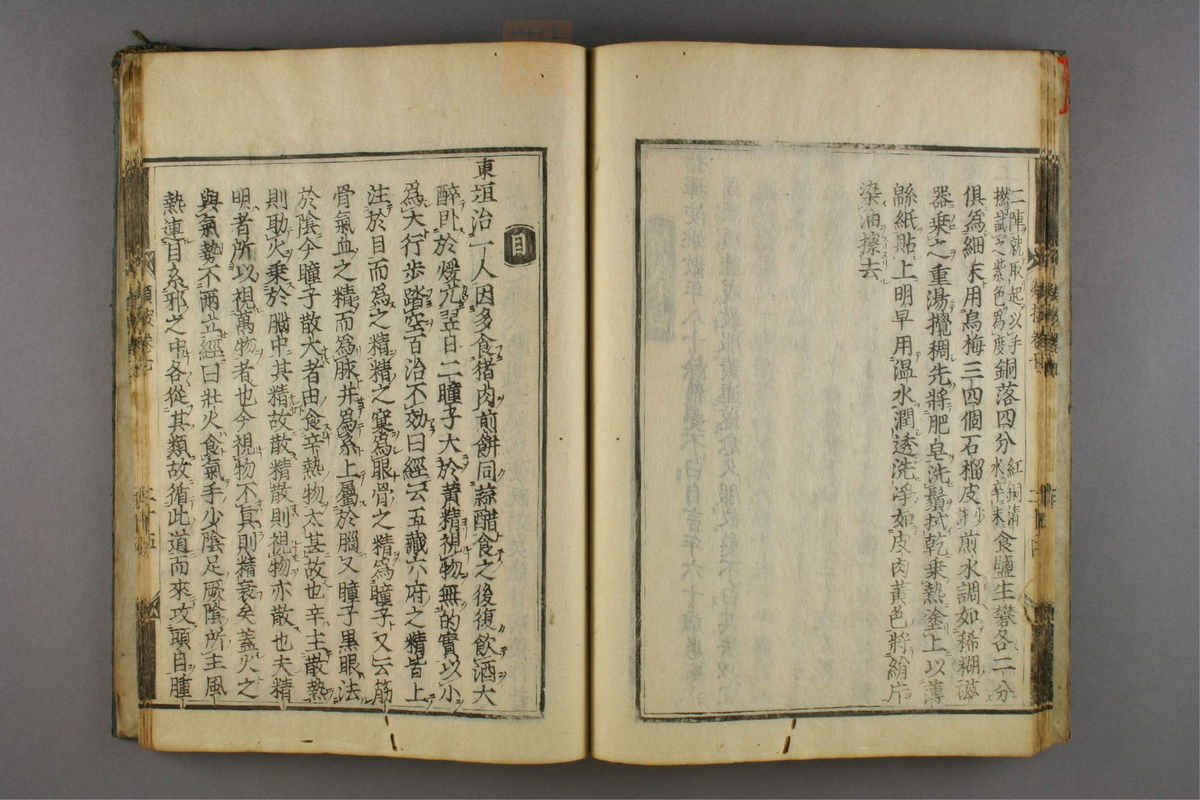 二陣就取起以手撚試之紫色為度銅落四分紅銅清水淬末食鹽生礬各二分
俱為細末用烏梅三四個石榴皮少許煎水調如稀糊磁
器乗之重湯攪稠先將肥皂洗鬚拭乾乗熱塗上以薄
緜紙貼上明早用温水潤透洗浄如皮肉黃色將絹片
染油擦去
目
東垣治一人因多食猪肉煎餅同蒜醋食之後復飲酒大
醉臥於煖炕翌日二瞳子大於黄精視物無的實以小
為大行歩踏空百治不効曰經云五藏六府之精皆上
注於目而為之精精之窠為眼骨之精為瞳子又云筋
骨氣血之精而為脉并為系上屬於腦又瞳子黒眼法
於陰今瞳子散大者由食辛熱物太甚故也辛主散熱
則助火乗於腦中其精故散精散則視物亦散也夫精
明者所以視萬物者也今視物不真則精衰矣蓋火之
與氣勢不兩立經曰壯火食氣手少陰足厥陰所主風
熱連目系邪之中各從其類故循此道而來攻頭目腫
二十五